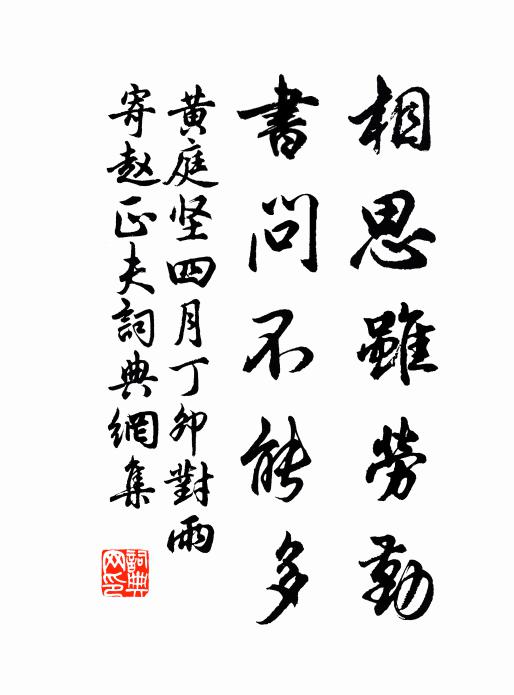 相思雖勞勤
書問不能多
黄庭坚四月丁卯對雨
寄赵正夫詞典網集
詞典
网印